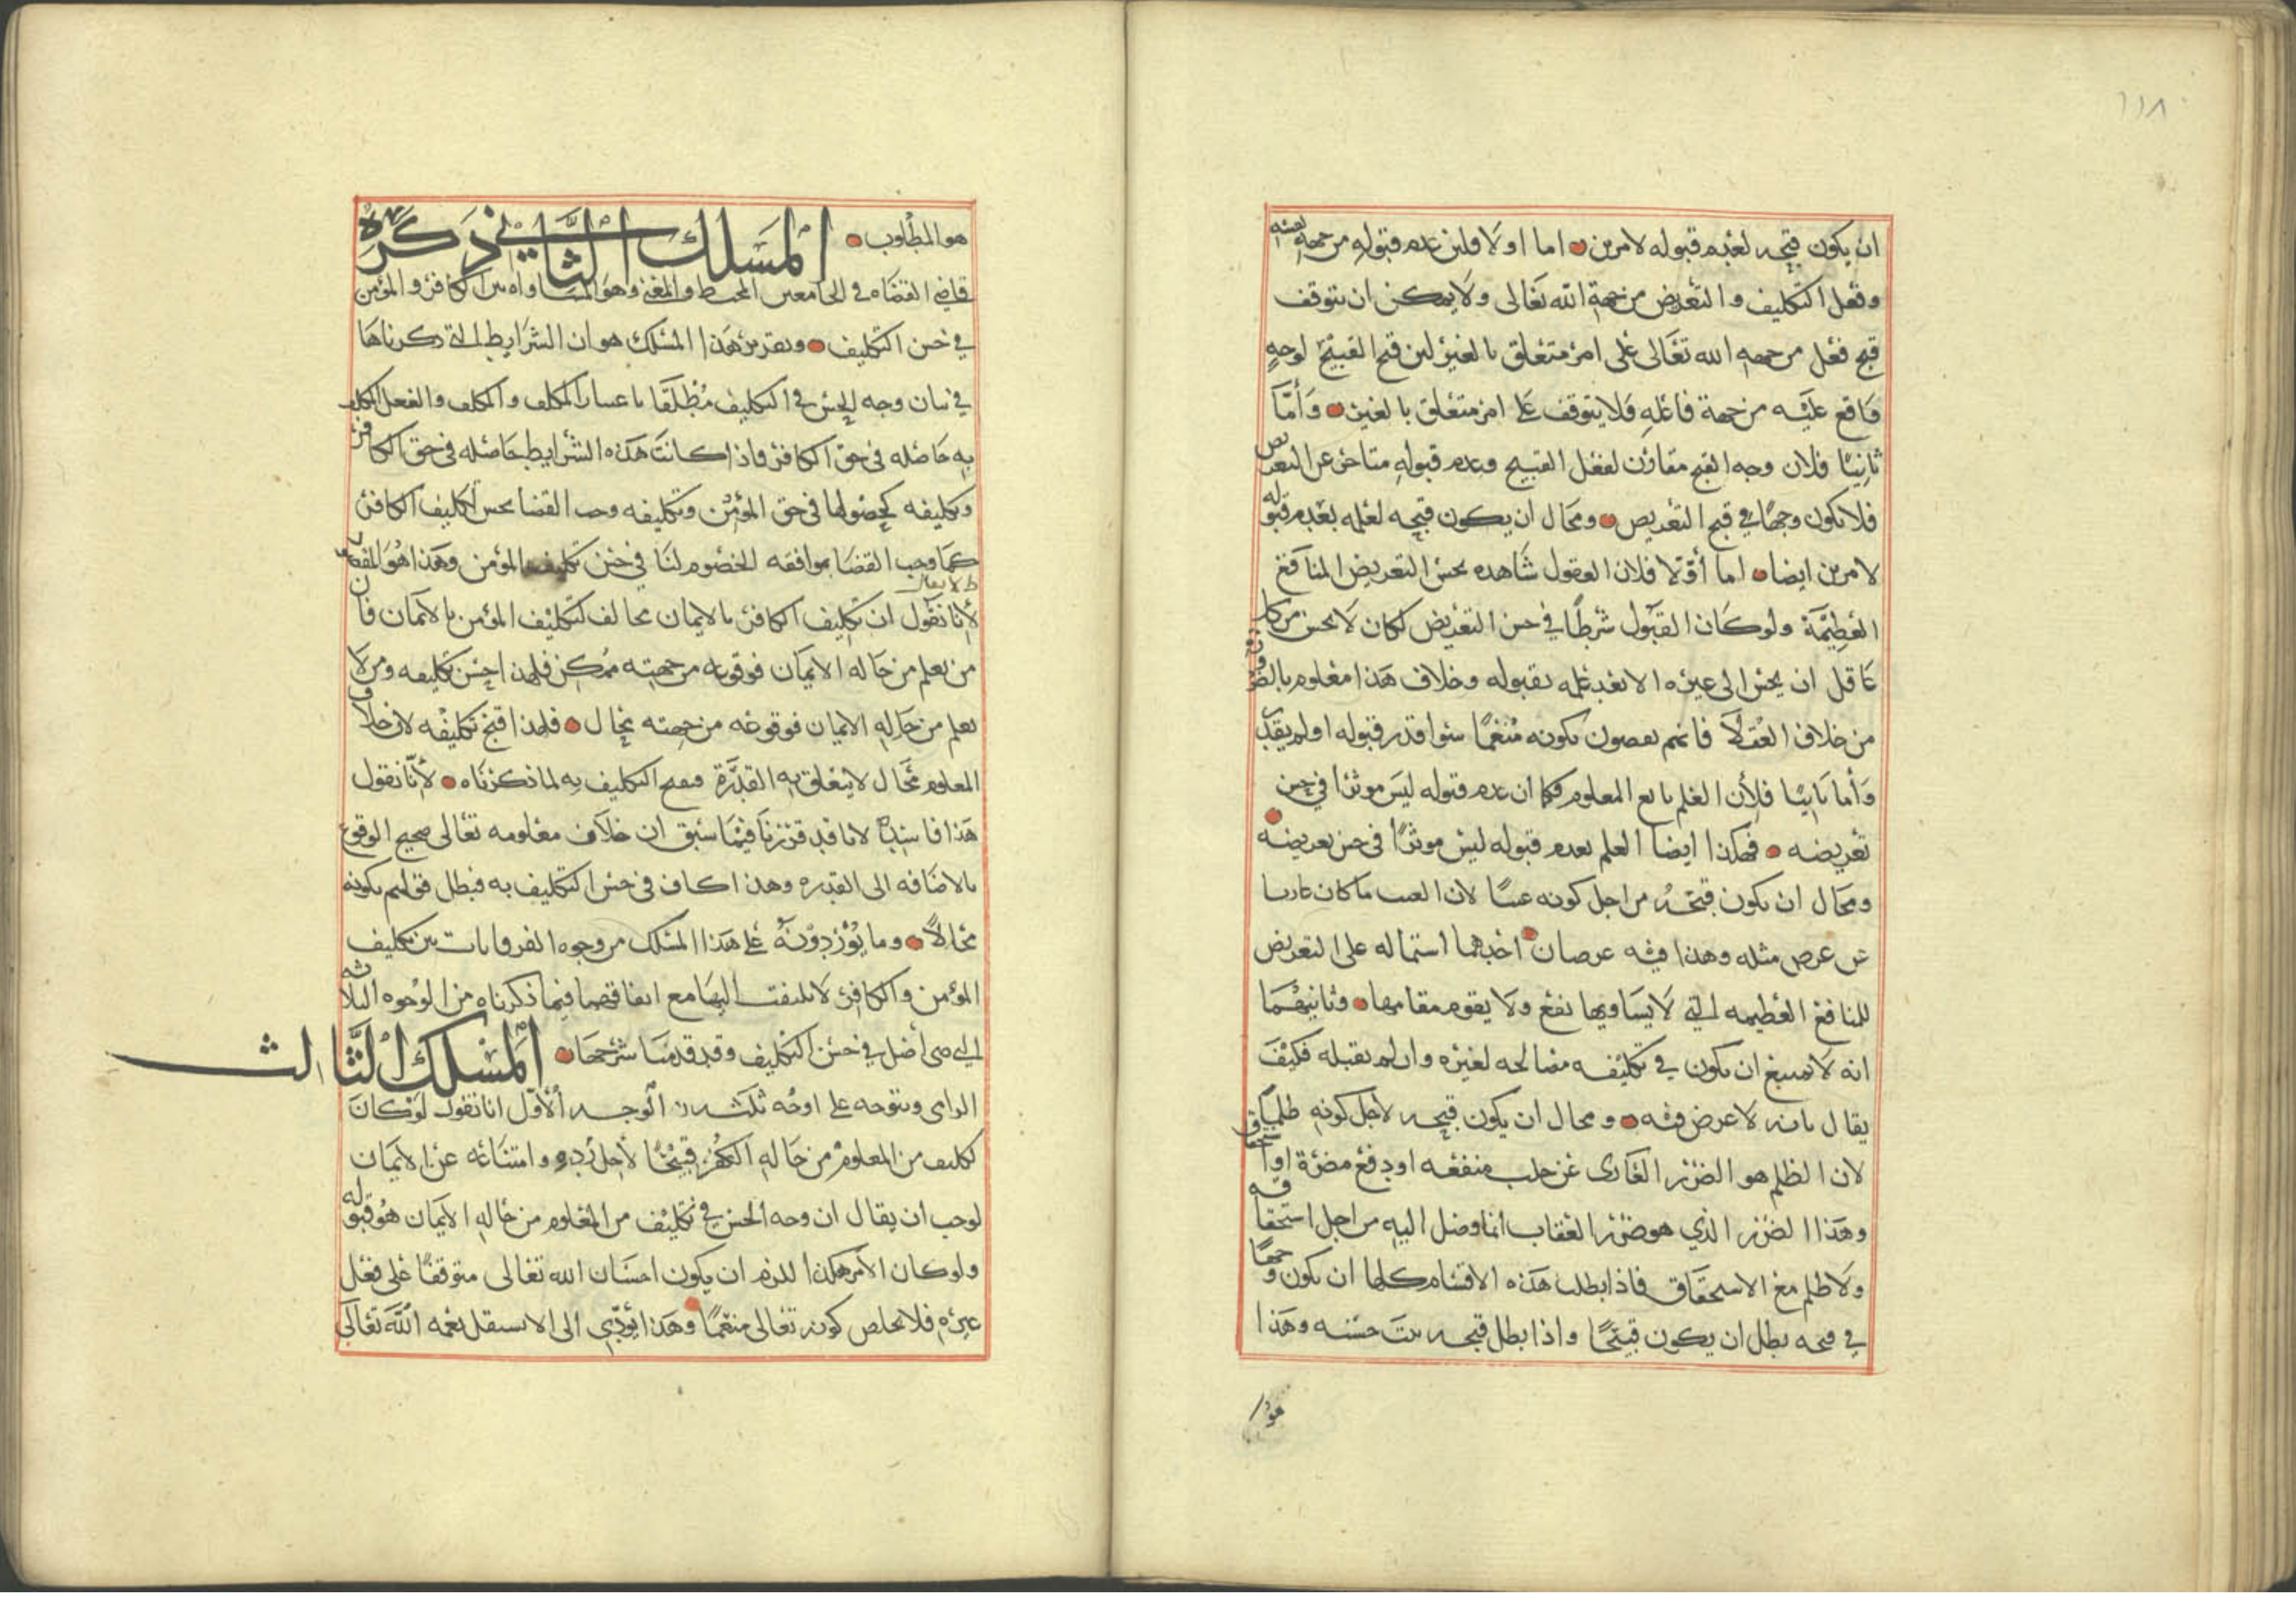 ١١٨
ان يكون قبحه لعدم قبوله لامرين اما اولا فلان عدم قبوله من جهة نفسه
وفعل التكليف والتعريض من جهة الله تعالى ولا يمكن ان يتوقف
قبح فعل من جهه الله تعالى على امر متعلق بالغير لان قبح القبيح لوجهٍ
واقع عليه من جهة فاعله فلا يتوقف على امر متعلق بالغير وأمَّا
ثانيًا فلان وجه القبح مقارن لفعل القبيح وعدم قبوله متاخر عن التعريض
فلا يكون وجهًا في قبح التعريض ومحال ان يكون قبحه لعلمه بعدم قبوله
لامرين ايضا اما أوّلا فلان العقول شاهده بحسن التعريض المنافع
العظيمة ولو كان القبول شرطًا في حسن التعريض لكان لا يحسن من كل
عاقل ان يحسن الى غيره الا بعد علمه بقبوله وخلاف هذا معلوم بالضروره
من خلاف العقلا فانهم يقضون بكونه منعمًا سوا قدر قبوله او لم يقدر
وأما ثانيًا فلأن العلم تابع المعلوم فكما ان عدم قبوله ليس موثرا في حسن
تعريضه فهكذا ايضا العلم بعدم قبوله ليس موثرًا في حسن تعريضه
ومحال ان يكون قبحه من اجل كونه عبثًا لان العبث ما كان عاريا
عن غرض مثله وهذا فيه غرضان احدهما استماله على التعريض
للمنافع العظيمه التي لا يساويها نفع ولا يقوم مقامها وثانيهما
انه لا يمتنع ان يكون في تكليفه مصالحه لغيره وان لم يقبله فكيف
يقال بانه لا غرض فيه ومحال ان يكون قبحه لاجل كونه ظلمًا
لان الظلم هو الضرر العاري عن جلب منفعه او دفع مضرة او استحقاق
وهذا الضرر الذي هو ضرر العقاب انما وصل اليه من اجل استحقاقه
ولا ظلم مع الاستحقاق فاذا بطلت هذه الاقسام كلها ان يكون وجهًا
في قبحه بطل ان يكون قبيحًا واذا بطل قبحه ثبت حسنه وهذا
هو ا
هو المطلوب المسلك الثاني ذكره
قاضي القضاه في الجامعين المحيط والمغني وهو المساواه بين الكافر والمؤمن
في حسن التكليف وتقرير هذا المسلك هو ان الشرايط التي ذكرناها
في بيان وجه الحسن في التكليف مطلقا باعتبار المكلف والمكلف والفعل المكلف
به حاصله في حق الكافر فاذا كانت هذه الشرايط حاصله في حق الكافر
وتكليفه كحصولها في حق المؤمن وتكليفه وجب القضا بحسن تكليف الكافر
كما وجب القضا بموافقه الخصوم لنا في حسن تكليف المؤمن وهذا هو المقصود
لا يقال
لأنا نقول ان تكليف الكافر بالايمان مخالف لتكليف المؤمن بالايمان فان
من يعلم من حاله الايمان فوقوعه من جهته ممكن فلهذا احسن تكليفه ومن لا
يعلم من حاله الايمان فوقوعه من جهته محال فلهذا قبح تكليفه لان خلاف
المعلوم محال لا يتعلق به القدرة فيقبح التكليف به لما ذكرناه لأنّا نقول
هذا فاسد لانا قد قررنا فيما سبق ان خلاف معلومه تعالى صحيح الوقوع
بالاضافه الى القدره وهذا كاف في حسن التكليف به فبطل قولهم بكونه
محالاً وما يوردونه على هذا المسلك من وجوه الفروقات بين تكليف
المؤمن والكافر لا يلتفت اليها مع اتفاقهما فيما ذكرناه من الوجوه الثلاثه
التي هي أصل في حسن التكليف وقد قدمنا شرحها المسلك الثالث
الزامي ويتوجه على اوجه ثلثه الوجه الأول انا نقول لو كان
تكليف من المعلوم من حاله الكفر قبيحًا لأجل رده وامتناعه عن الايمان
لوجب ان يقال ان وجه الحسن في تكليف من المعلوم من حاله الايمان هو قبوله
ولو كان الأمر هكذا للزم ان يكون احسان الله تعالى متوقفًا على فعل
غيره فلا يخلص كونه تعالى منعمًا وهذا يؤدي الى الا تستقل نعمه الله تعالى